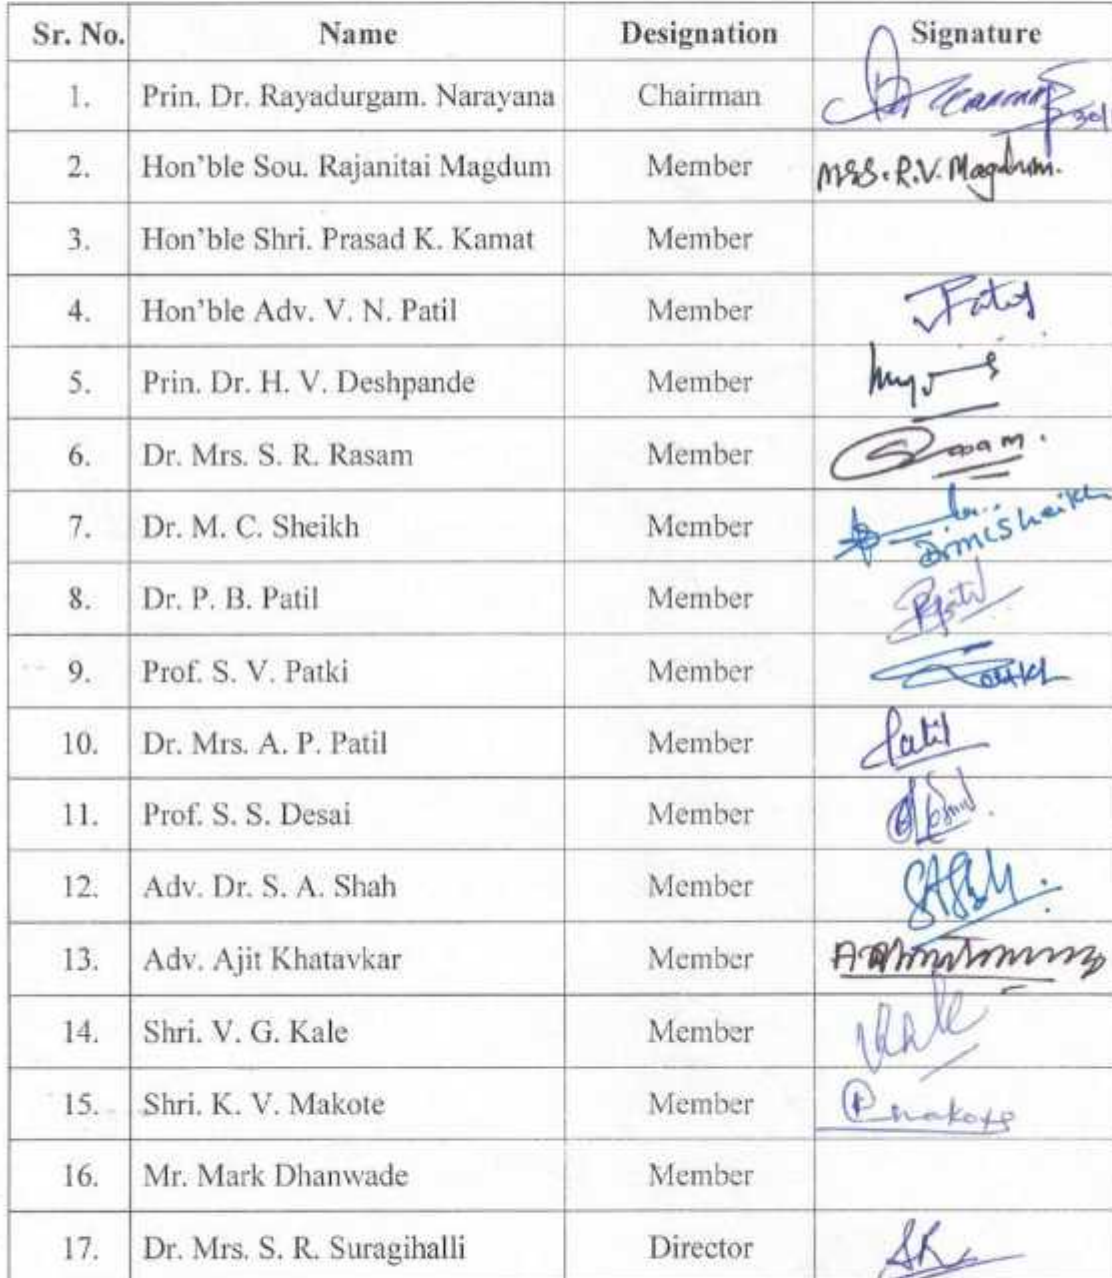 Sr. No. Name Designation Signature
1. Prin. Dr. Rayadurgam. Narayana Chairman
2. Hon'ble Sou. Rajanitai Magdum Member Mrs. R.V. Magdum.
3. Hon'ble Shri. Prasad K. Kamat Member
4. Hon'ble Adv. V. N. Patil Member Patil
5. Prin. Dr. H. V. Deshpande Member
6. Dr. Mrs. S. R. Rasam Member
7. Dr. M. C. Sheikh Member Dr MC Sheikh
8. Dr. P. B. Patil Member
9. Prof. S. V. Patki Member
10. Dr. Mrs. A. P. Patil Member Patil
11. Prof. S. S. Desai Member
12. Adv. Dr. S. A. Shah Member
13. Adv. Ajit Khatavkar Member
14. Shri. V. G. Kale Member Kale
15. Shri. K. V. Makote Member makote
16. Mr. Mark Dhanwade Member
17. Dr. Mrs. S. R. Suragihalli Director